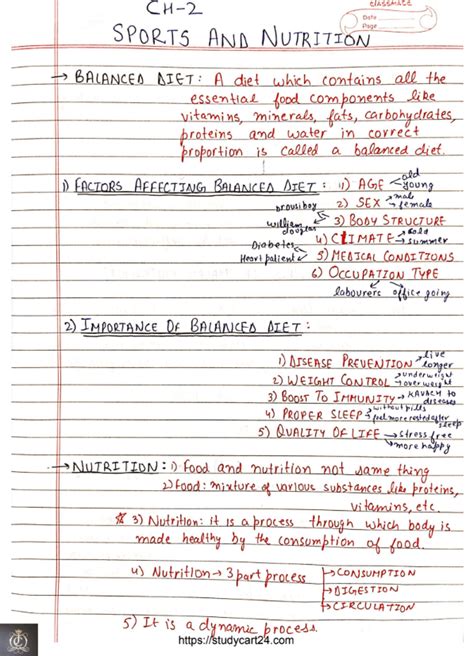 CH-2
classmate
Date
Page
SPORTS AND NUTRITION
→ BALANCED DIET: A diet which contains all the
essential food components like
vitamins, minerals, fats, carbohydrates,
proteins and water in correct
proportion is called a balanced diet.
1) FACTORS AFFECTING BALANCED DIET: 1) AGE old
young
2) SEX → male
→ female
3) BODY STRUCTURE
william
douglas
4) CLIMATE → cold
→ summer
Diabetes
Heart patient 5) MEDICAL CONDITIONS
6) OCCUPATION TYPE
labourers office going
2) IMPORTANCE OF BALANCED DIET:
1) DISEASE PREVENTION → live
longer
2) WEIGHT CONTROL → underweight
→ overweight
3) BOOST TO IMMUNITY → KAVACH to
diseases
4) PROPER SLEEP → without pills
feel more rested after
sleep
5) QUALITY OF LIFE → stress free
→ more happy
→ NUTRITION: 1) Food and nutrition not same thing
2) Food: mixture of various substances like proteins,
vitamins, etc.
3) Nutrition: it is a process through which body is
made healthy by the consumption of food.
4) Nutrition → 3 part process → CONSUMPTION
→ DIGESTION
→ CIRCULATION
5) It is a dynamic process.
https://studycart24.com